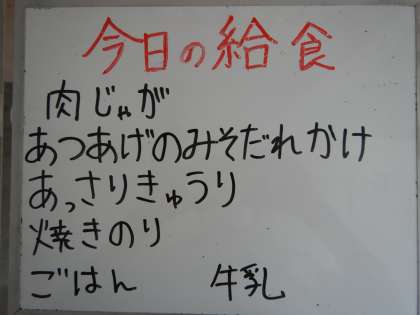 今日の給食
肉じゃが
あつあげのみそだれかけ
あっさりきゅうり
焼きのり
ごはん 牛乳